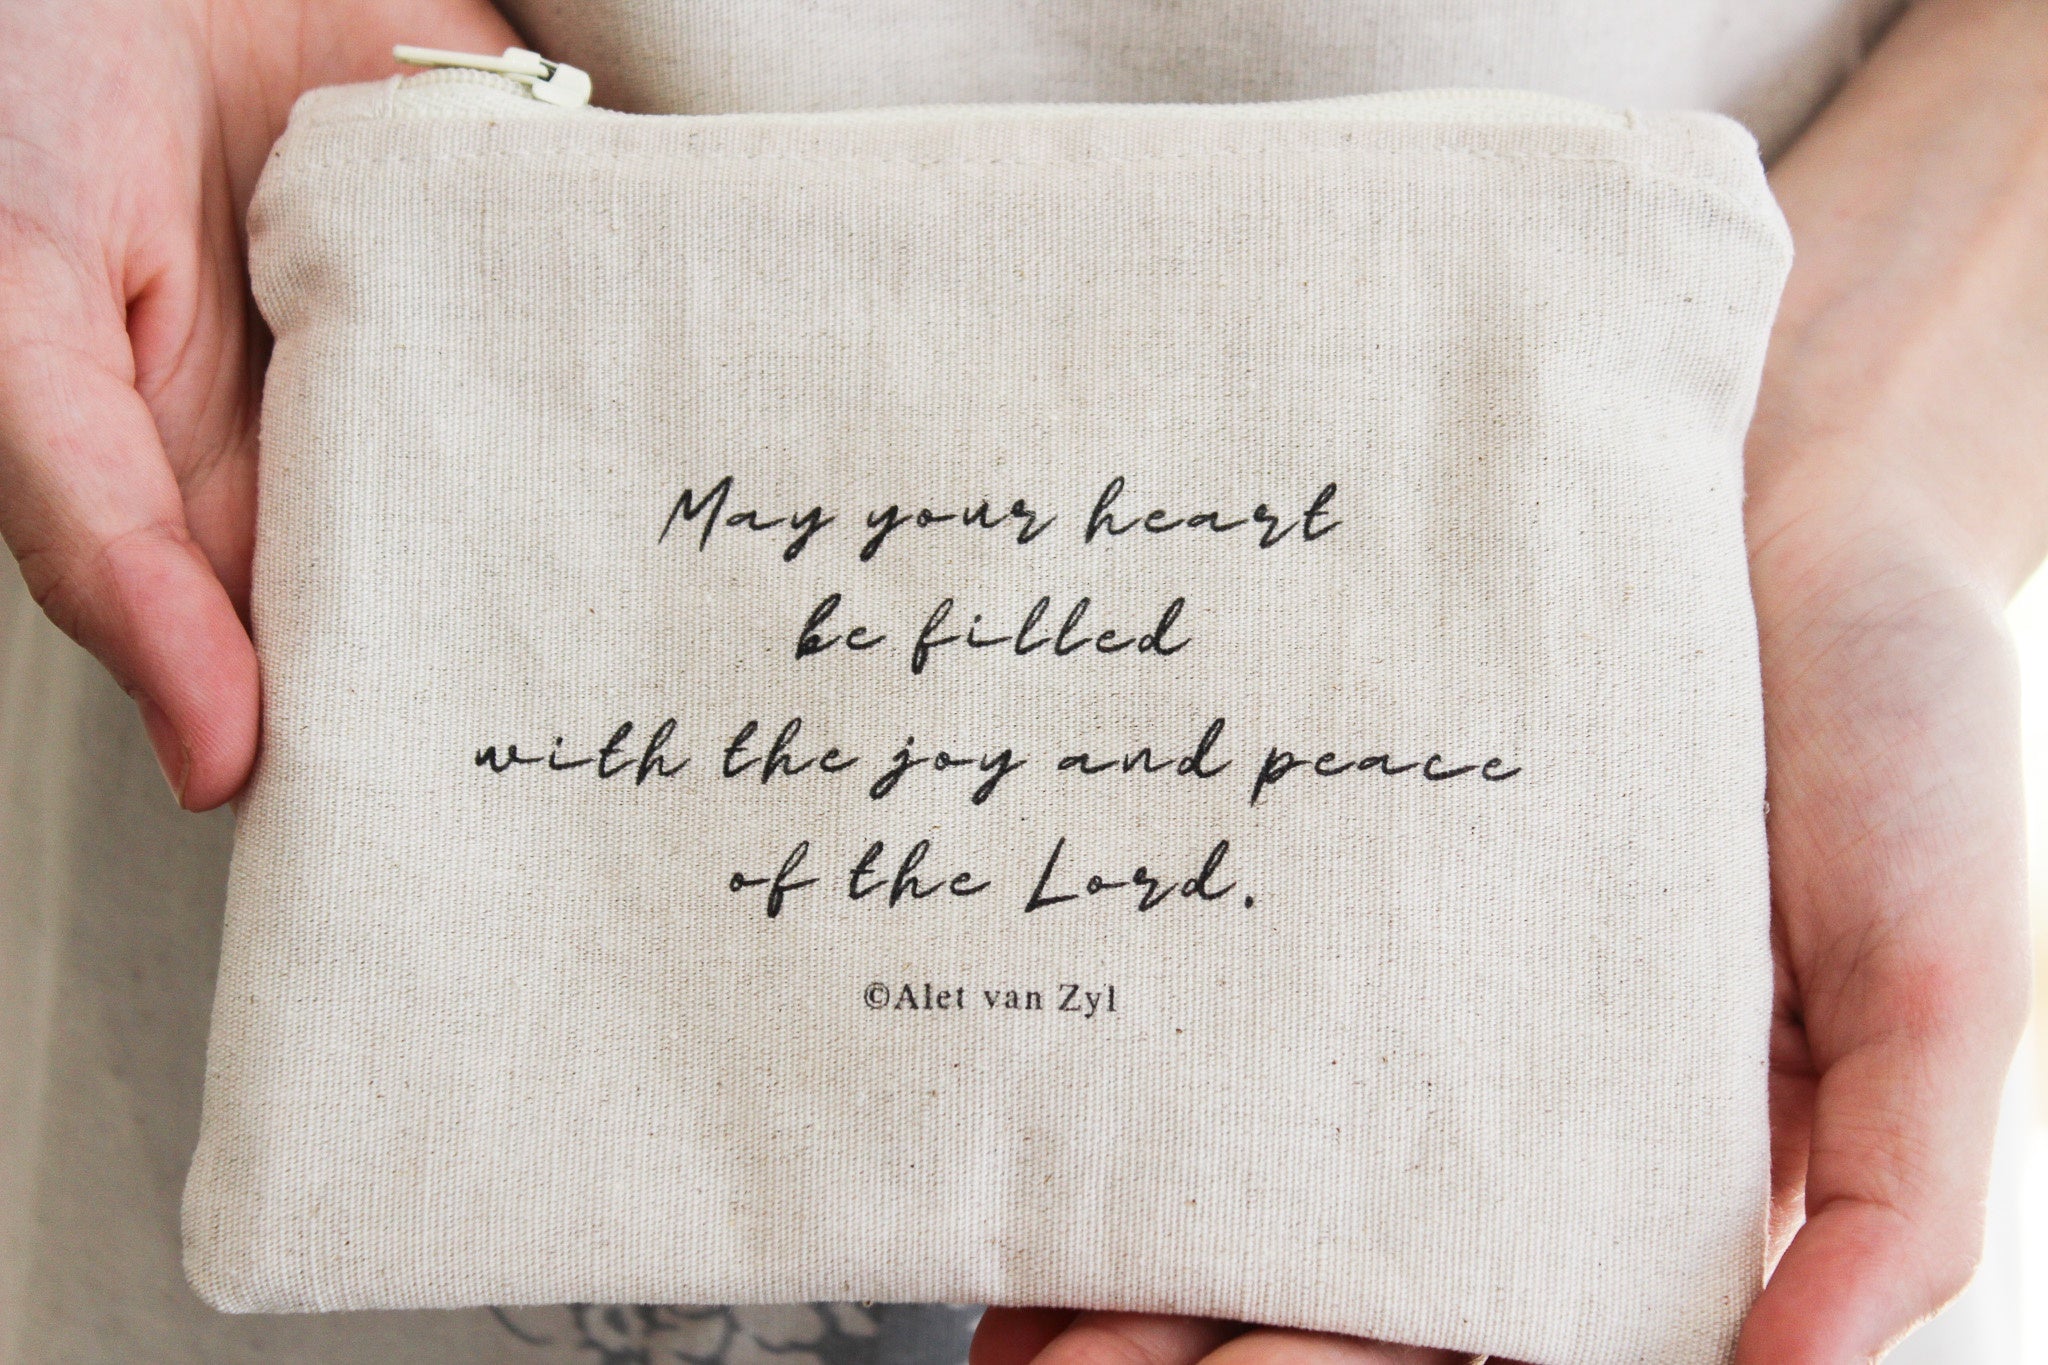 May your heart
be filled
with the joy and peace
of the Lord.
©Alet van Zyl